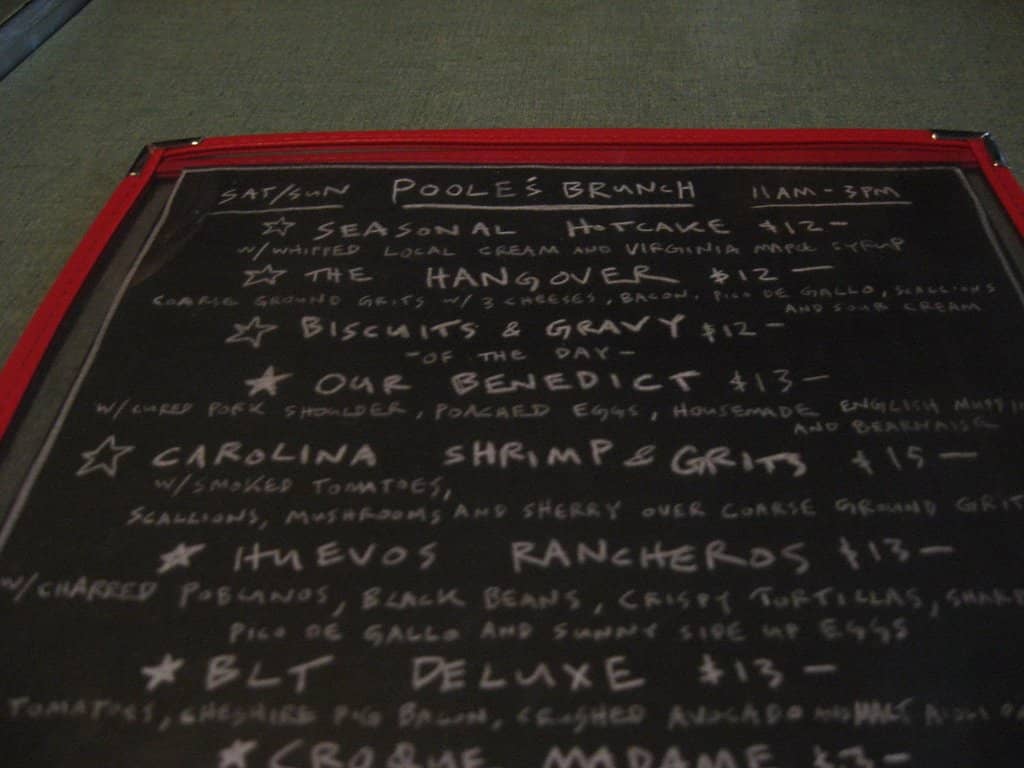 SAT/SUN POOLE'S BRUNCH 11AM - 3PM
☆ SEASONAL HOTCAKE $12-
W/WHIPPED LOCAL CREAM AND VIRGINIA MAPLE SYRUP
☆ THE HANGOVER $12 -
COARSE GROUND GRITS W/ 3 CHEESES, BACON, PICO DE GALLO, SCALLIONS
AND SOUR CREAM
☆ BISCUITS & GRAVY $12 -
-OF THE DAY-
★ OUR BENEDICT $13-
W/CURED PORK SHOULDER, POACHED EGGS, HOUSEMADE ENGLISH MUFFIN
AND BEARNAISE
☆ CAROLINA SHRIMP & GRITS $15 -
W/SMOKED TOMATOES,
SCALLIONS, MUSHROOMS AND SHERRY OVER COARSE GROUND GRIT
★ HUEVOS RANCHEROS $13 -
W/CHARRED POBLANOS, BLACK BEANS, CRISPY TORTILLAS,
PICO DE GALLO AND SUNNY SIDE UP EGGS
★ BLT DELUXE $13 -
TOMATOES, CHESHIRE PIG BACON, CRUSHED AVOCADO
★ CROQUE MADAME